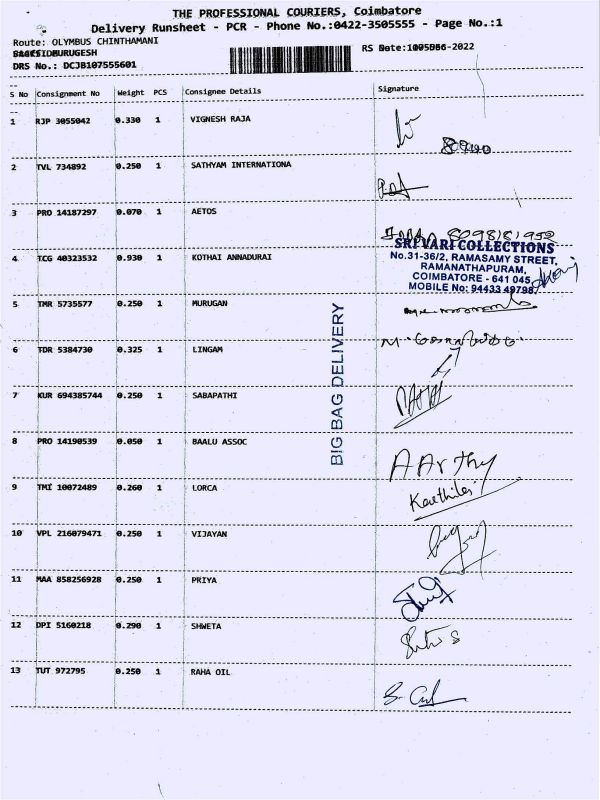 THE PROFESSIONAL COURIERS, Coimbatore
Delivery Runsheet - PCR - Phone No.:0422-3505555 - Page No.:1
Route: OLYMBUS CHINTHAMANI
RS Date: -2022
DRS No.: DCJB107555601
S No Consignment No Weight PCS Consignee Details Signature
1 RJP 3055042 0.330 1 VIGNESH RAJA
2 TVL 734892 0.250 1 SATHYAM INTERNATIONA
3 PRO 14187297 0.070 1 AETOS
8098181952
4 TCG 40323532 0.930 1 KOTHAI ANNADURAI
SRI VARI COLLECTIONS
No.31-36/2, RAMASAMY STREET,
RAMANATHAPURAM,
COIMBATORE - 641 045.
MOBILE No: 94433 49798
5 TMR 5735577 0.250 1 MURUGAN
6 TDR 5384730 0.325 1 LINGAM
7 KUR 694385744 0.250 1 SABAPATHI
BIG BAG DELIVERY
8 PRO 14190539 0.050 1 BAALU ASSOC
AArthy
9 TMI 10072489 0.260 1 LORCA
10 VPL 216079471 0.250 1 VIJAYAN
11 MAA 858256928 0.250 1 PRIYA
12 DPI 5160218 0.290 1 SHWETA
13 TUT 972795 0.250 1 RAHA OIL